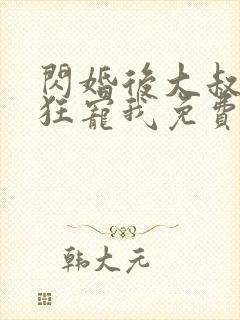 閃婚後大叔
狂寵我免費
韩大元